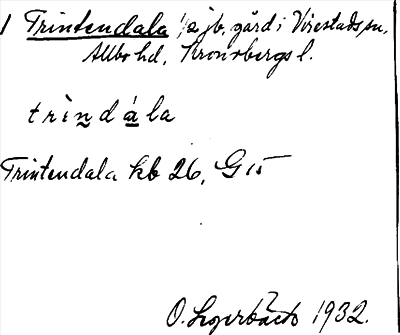 1 Trintendala 1/2 jb, gård i Virestads sn,
Allbo hd, Kronobergs l.
trìndála
Trintendala kb 26, G 15
O. 1932.